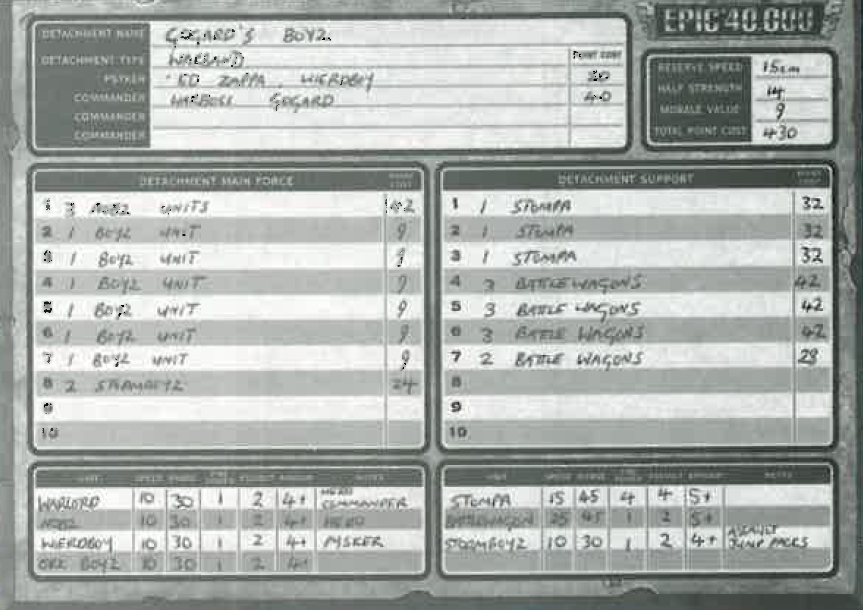 EPIC 40,000
DETACHMENT NAME GOGARD'S BOYZ
DETACHMENT TYPE WARBAND POINT COST
PSYKER 'ED ZAPPA, WIERDBOY 20
COMMANDER WARBOSS GOGARD 40
COMMANDER
COMMANDER
RESERVE SPEED 15cm
HALF STRENGTH 14
MORALE VALUE 9
TOTAL POINT COST 430
DETACHMENT MAIN FORCE POINT COST
1 3 NOBZ UNITS 42
2 1 BOYZ UNIT 9
3 1 BOYZ UNIT 9
4 1 BOYZ UNIT 9
5 1 BOYZ UNIT 9
6 1 BOYZ UNIT 9
7 1 BOYZ UNIT 9
8 2 STORMBOYZ 24
9
10
DETACHMENT SUPPORT POINT COST
1 1 STOMPA 32
2 1 STOMPA 32
3 1 STOMPA 32
4 3 BATTLEWAGONS 42
5 3 BATTLE WAGONS 42
6 3 BATTLE WAGONS 42
7 2 BATTLE WAGONS 28
8
9
10
UNIT SPEED RANGE FIRE POWER ASSAULT ARMOUR NOTES
WARLORD 10 30 1 2 4+ HERO COMMANDER
NOBZ 10 30 1 2 4+ HERO
WIERDBOY 10 30 1 2 4+ PYSKER
ORK BOYZ 10 30 1 2 4+
UNIT SPEED RANGE FIRE POWER ASSAULT ARMOUR NOTES
STOMPA 15 45 4 4 5+
BATTLEWAGON 25 45 1 2 5+
STOOMBOYZ 10 30 1 2 4+ ASSAULT JUMP PACKS